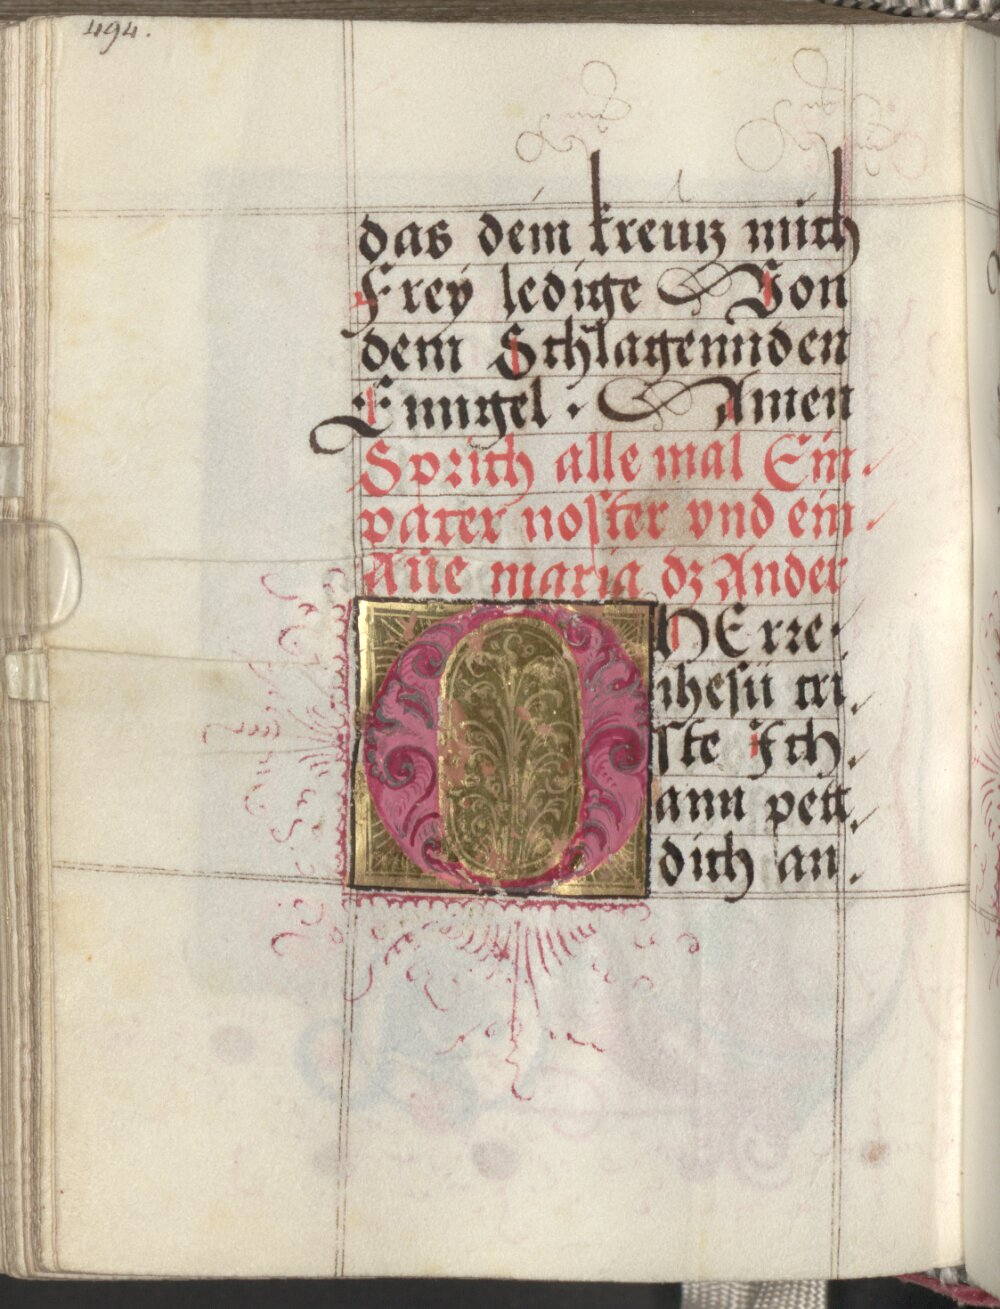 494.
das dem kreutz mich
Frey ledige Von
dem Schlagennden
Enngel · Amen
Sprich alle mal Ein
pater noster vnd ein
Aue maria dz Ander
O HErre
ihesu cri
ste Ich
ann pett
dich an